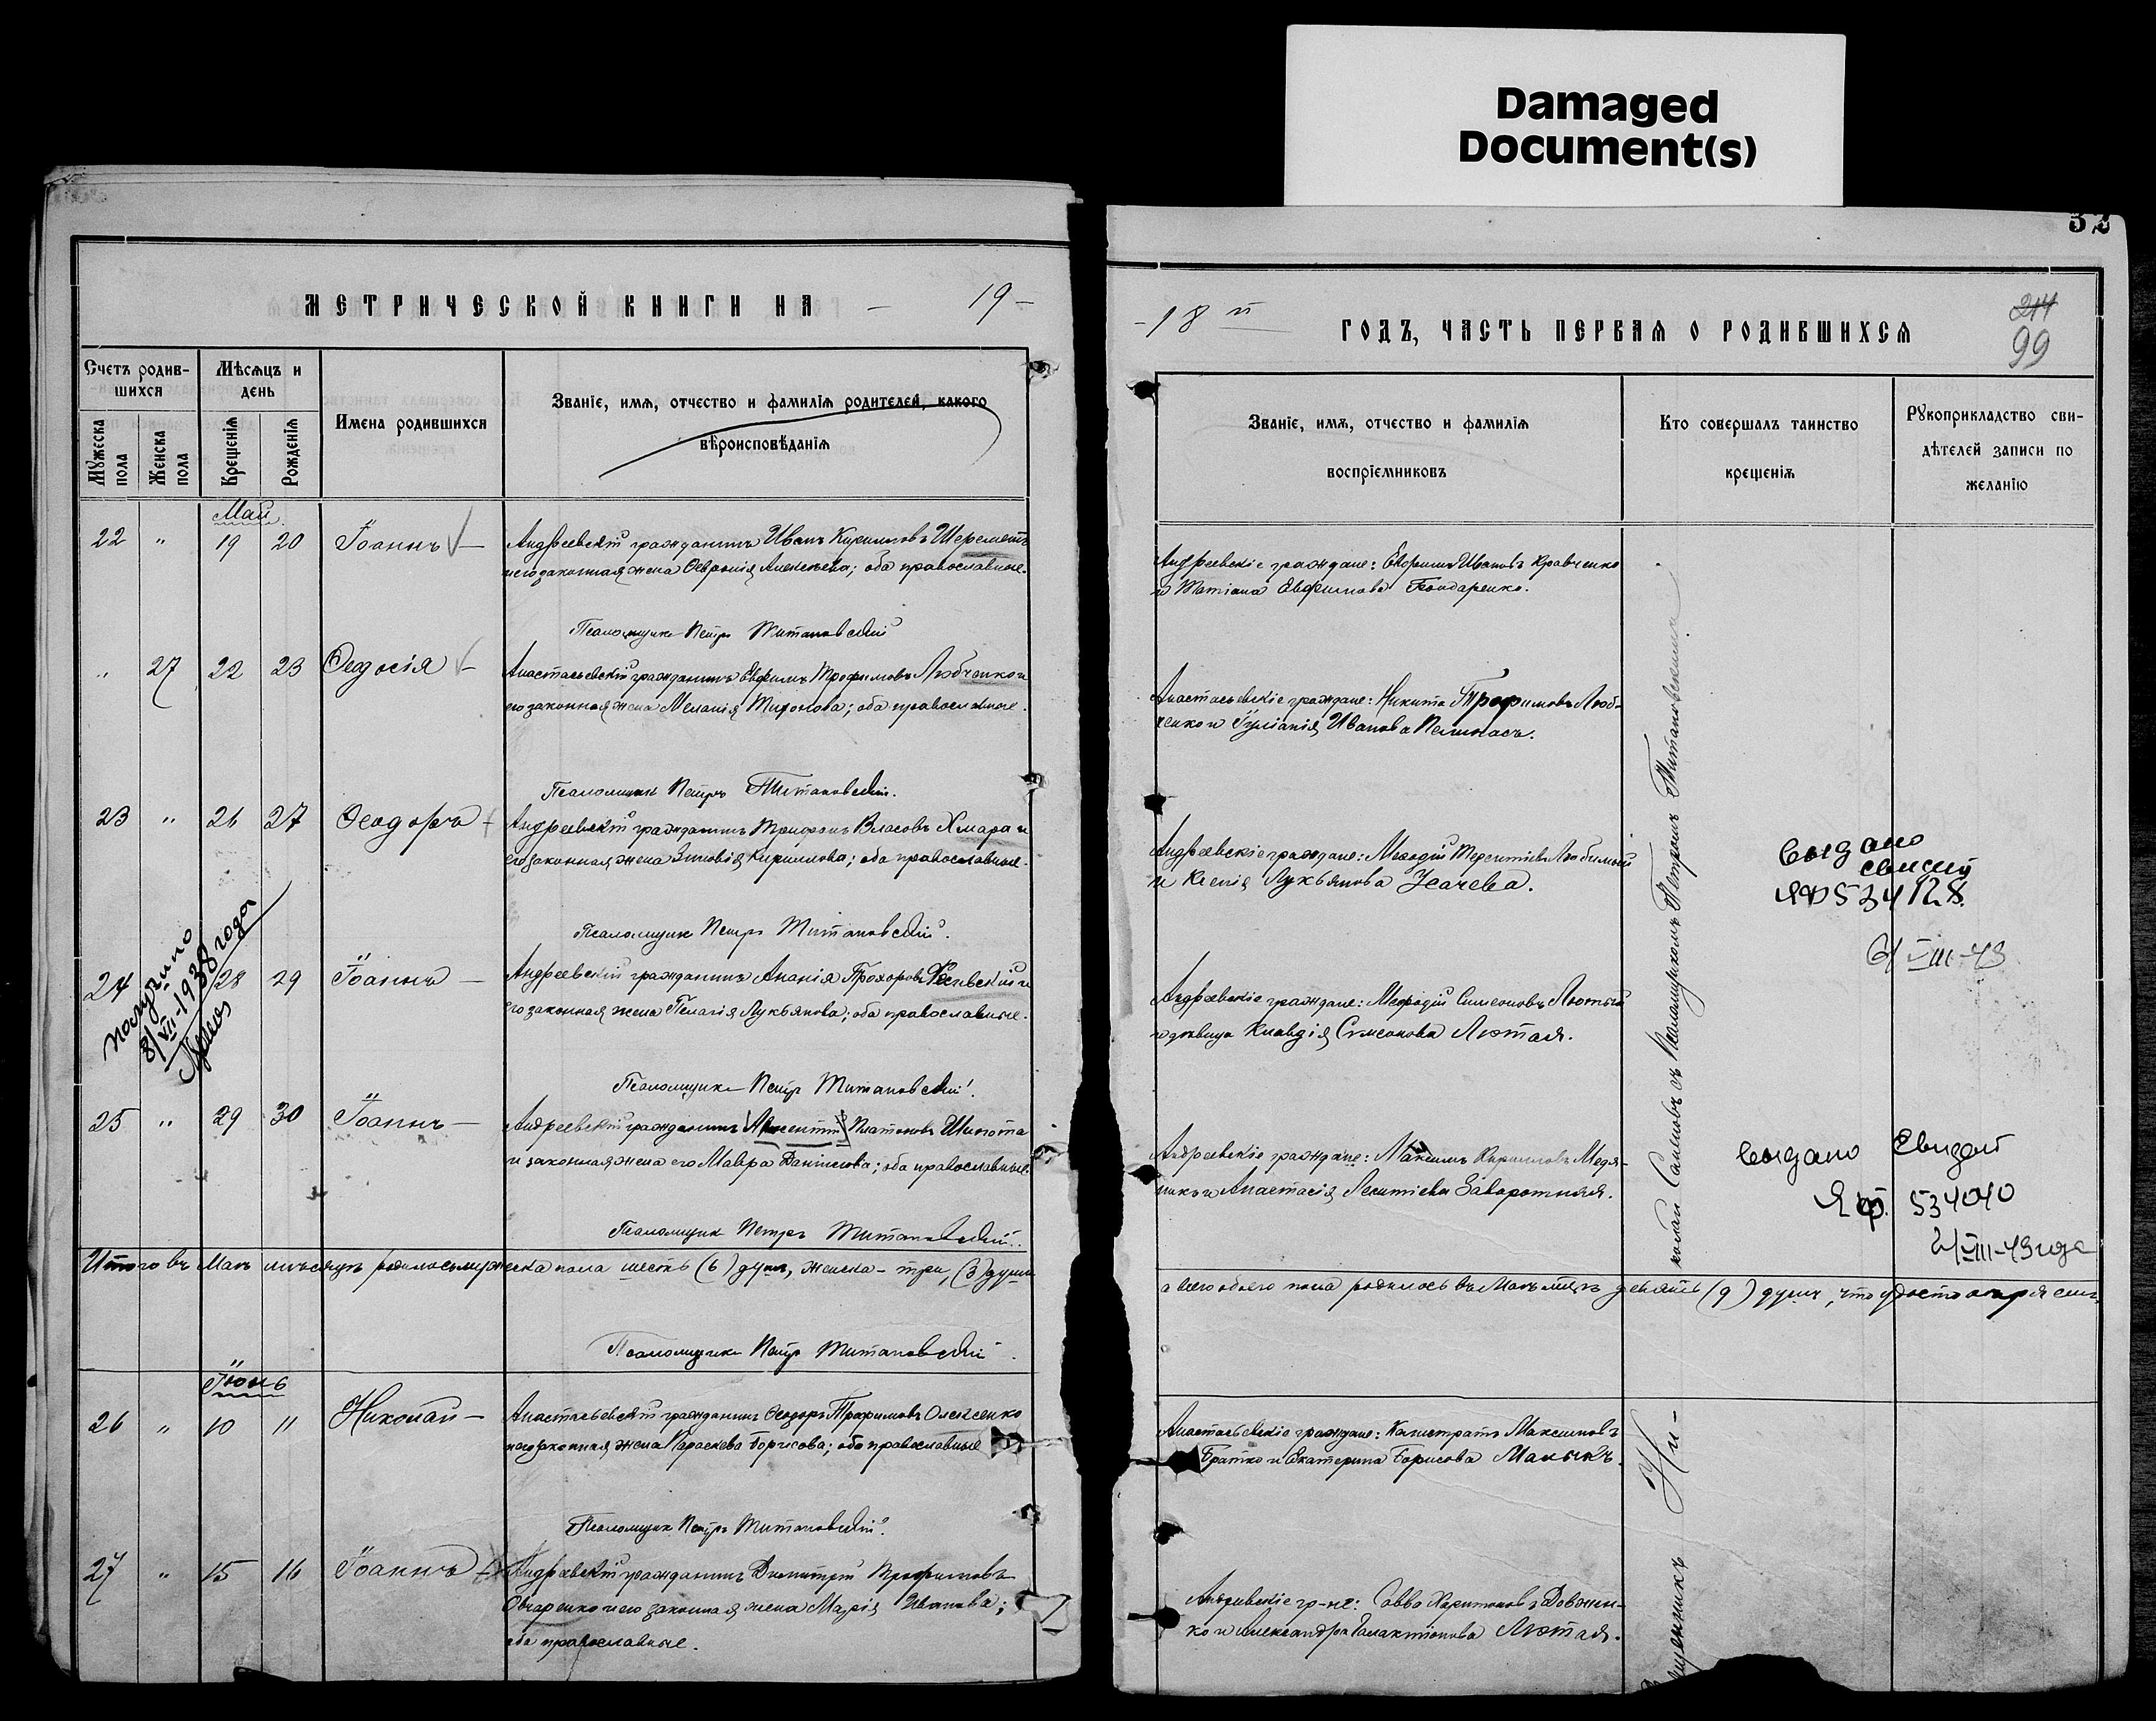 Damaged
Document(s)
52
МЕТРИЧЕСКОЙ КНИГИ НА — 19 —
Счетъ родив-
шихся
Мѣсяцъ и
день
Имена родившихся
Званіе, имя, отчество и фамилія родителей, какого
вѣроисповѣданія
Мужеска
пола
Женска
пола
Крещенія
Рожденія
Май
22 " 19 20 Іоаннъ —
Андреевскій гражданинъ Иванъ Кирилловъ Шереметъ
и его законная жена Февронія Алексѣева; оба православные.
Псаломщикъ Петръ Титановскій
" 27 22 23 Феодосія —
Анастасьевскій гражданинъ Евфимъ Трофимовъ Любченко и
его законная жена Меланія Тихонова; оба православные.
Псаломщикъ Петръ Титановскій.
23 " 26 27 Феодоръ
Андреевскій гражданинъ Трифонъ Власовъ Хмара и
его законная жена Зиновія Кириллова; оба православные.
Псаломщикъ Петръ Титановскій.
получено
8/VII-1938 года
24 28 29 Іоаннъ —
Андреевскій гражданинъ Ананія Прохоровъ и
его законная жена Пелагія Лукьянова; оба православные.
Псаломщикъ Петръ Титановскій
25 " 29 30 Іоаннъ —
Андреевскій гражданинъ Платоновъ Шипота
и законная жена его Мавра Даніилова; оба православные.
Псаломщикъ Петръ Титановскій.
Итого въ Маѣ мѣсяцѣ родилось мужеска пола шесть (6) душъ, женска — три, (3) души
Псаломщикъ Петръ Титановскій.
Іюнь
26 " 10 11 Николай —
Анастасьевскій гражданинъ Феодоръ Трофимовъ Олексенко
и его законная жена Параскева Борисова; оба православные
Псаломщикъ Петръ Титановскій.
27 " 15 16 Іоаннъ —
Андреевскій гражданинъ Димитрій Трофимовъ
Овчаренко и его законная жена Марія Иванова;
оба православные.
— 18 й ГОДЪ, ЧАСТЬ ПЕРВАЯ О РОДИВШИХСЯ
214
99
Званіе, имя, отчество и фамилія
воспріемниковъ
Кто совершалъ таинство
крещенія
Рукоприкладство сви-
дѣтелей записи по
желанію
Андреевскіе граждане: Ивановъ Кравченко
и Татіана Евфимова Бондаренко.
Анастасьевскіе граждане: Никита Трофимовъ Люб-
ченко и Іуліанія Иванова
Андреевскіе граждане: Меѳодій Терентіевъ Любимый
и Ксенія Лукьянова Усачева.
Андреевскіе граждане: Меѳодій Симеоновъ Лютый
и дѣвица Клавдія Симеонова Лютая.
Андреевскіе граждане: Максимъ Кирилловъ Медя-
никъ и Анастасія Леонтіева Заворотняя.
а всего обоего пола родилось въ Маѣ мѣс. девять (9) душъ, что удостовѣряемъ
Анастасьевскіе граждане: Калистратъ Максимовъ
Братко и Екатерина Борисова
Андреевскіе гр-не: Савва Харитоновъ Довжен-
ко и Александра Галактіонова Лютая.
Священникъ Ни-
колай Салиовъ съ Псаломщикомъ Петромъ Титановскимъ
выдано
ЯФ 534128
6/VIII-43
выдано Свидет
ЯФ. 534040
2/VIII-43 года